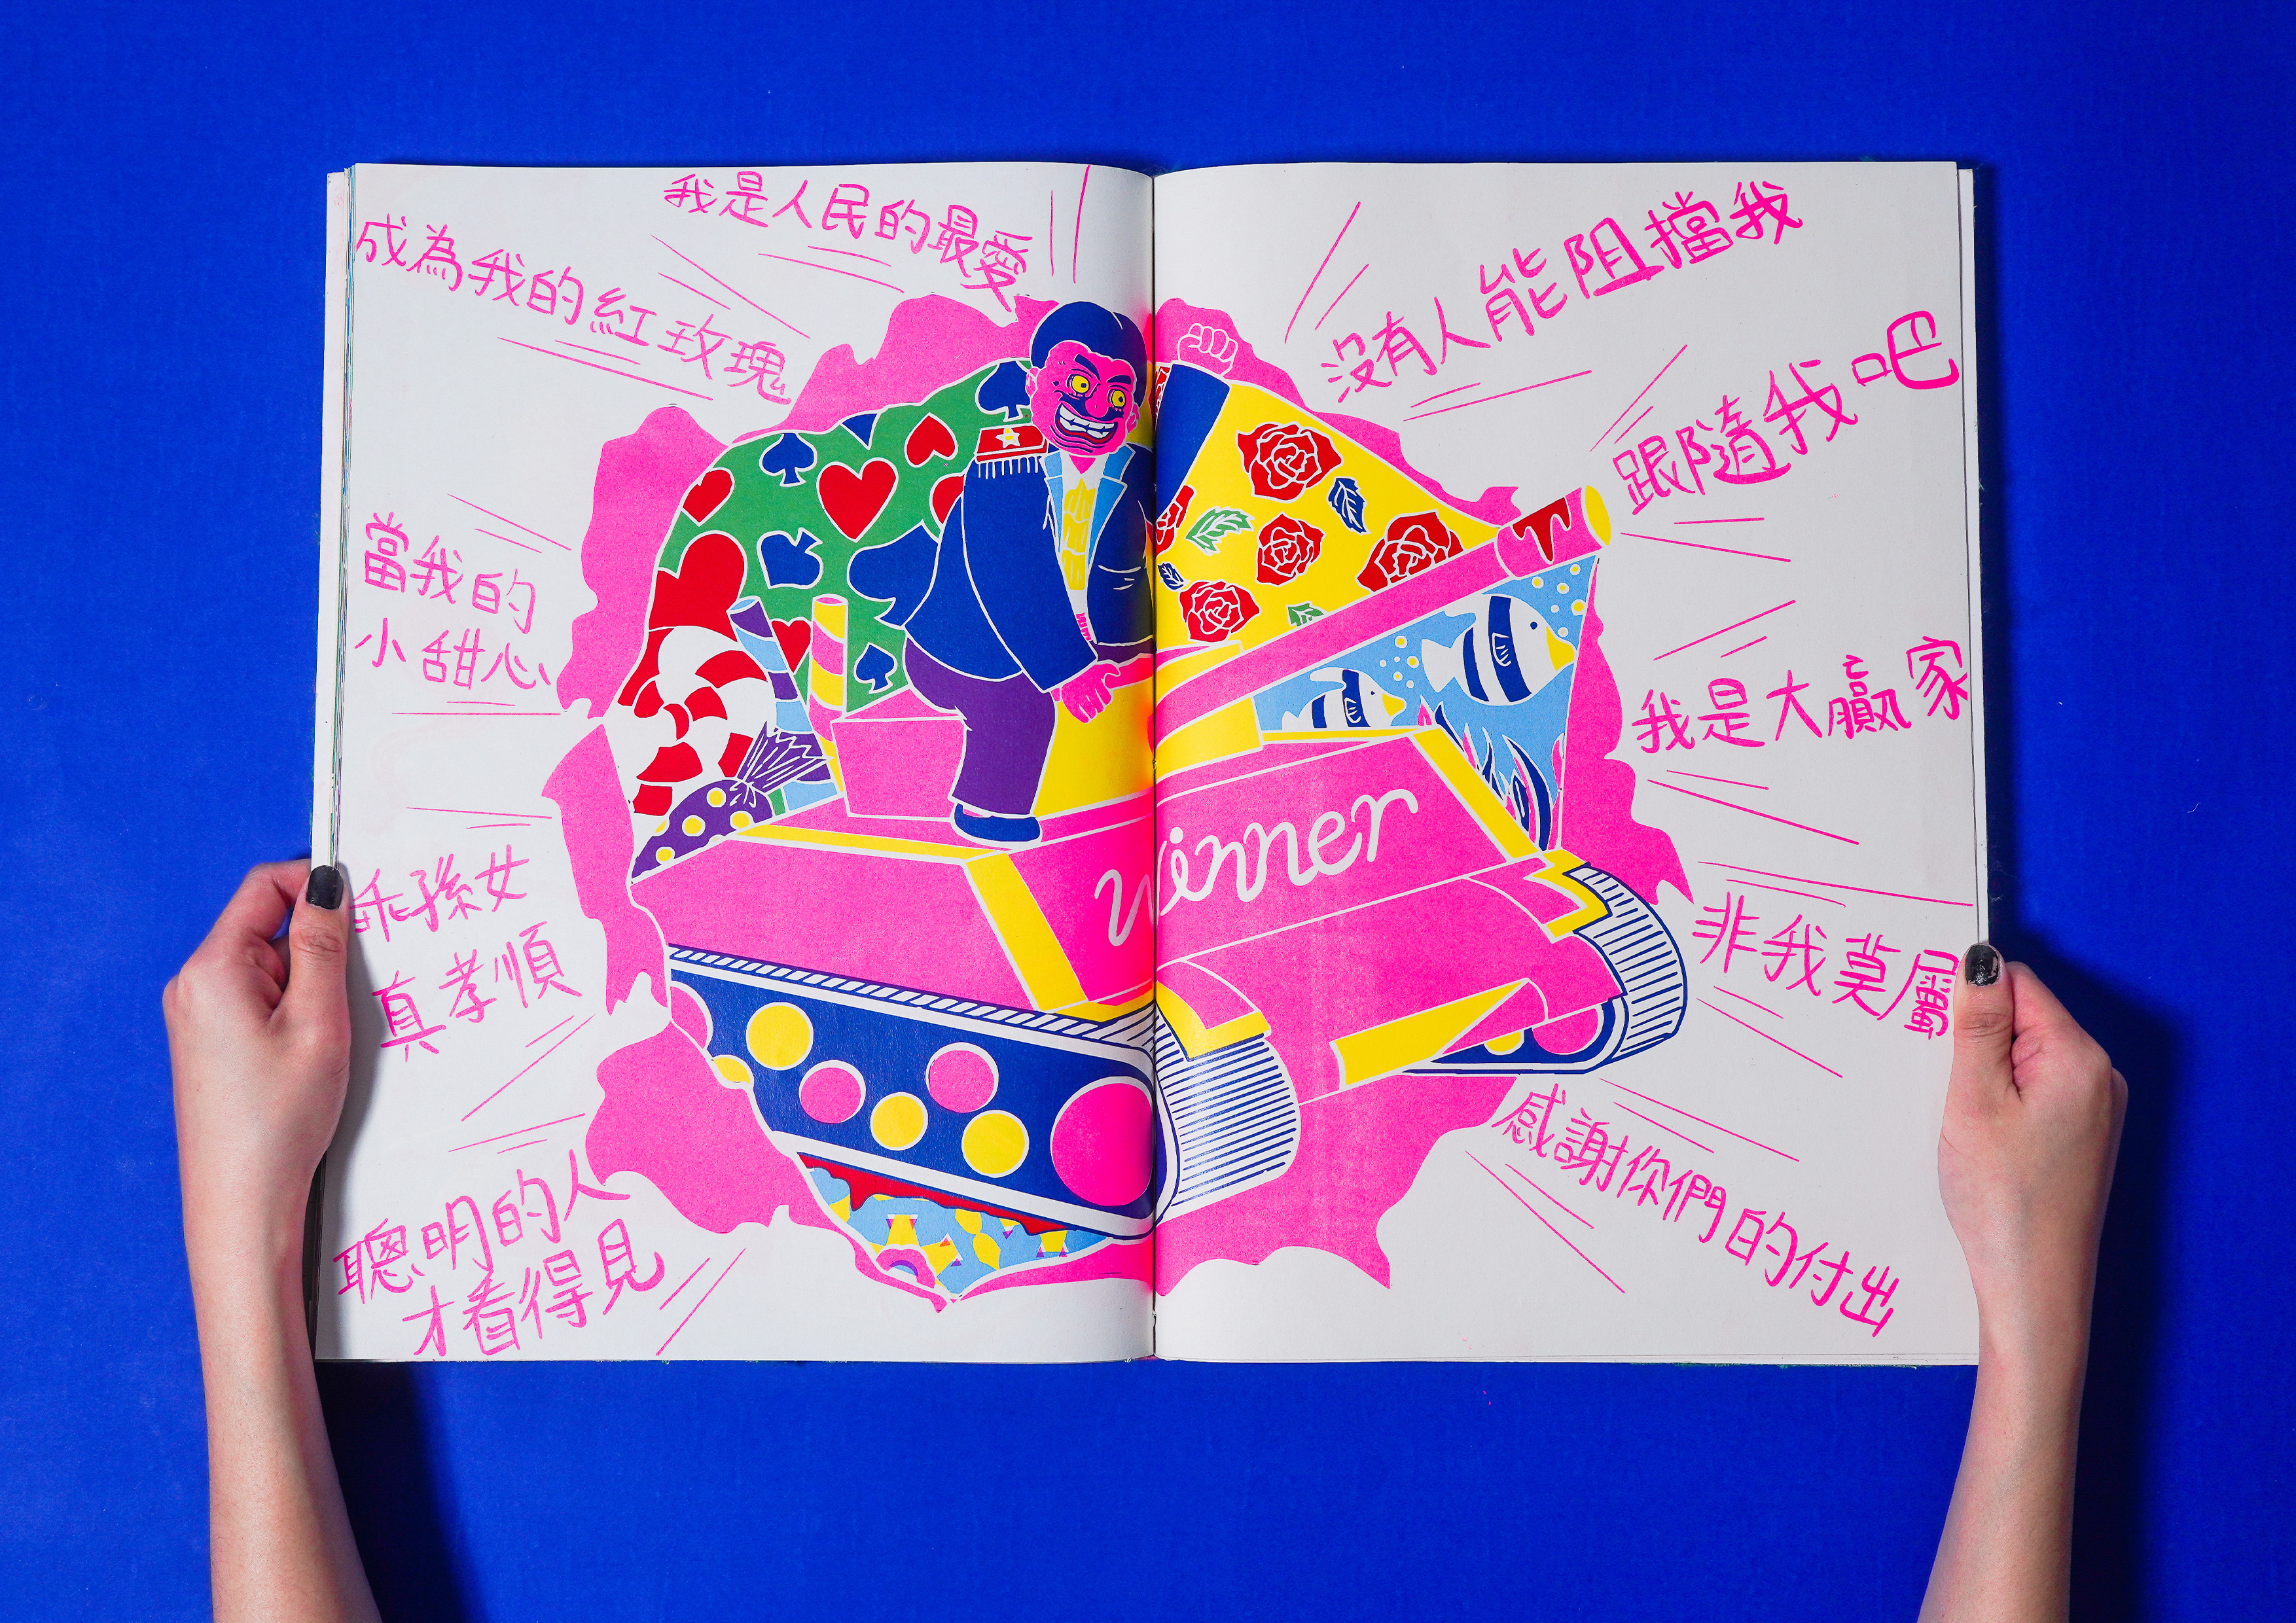 我是人民的最愛
成為我的紅玫瑰
當我的
小甜心
乖孫女
真孝順
聰明的人
才看得見
沒有人能阻擋我
跟隨我吧
我是大贏家
非我莫屬
感謝你們的付出
Winner